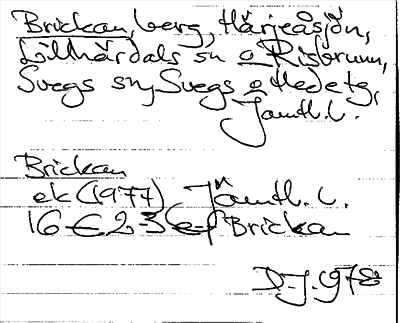 Brickan, berg, Härjeåsjön,
Lillhärdals sn o Risbrunn,
Svegs sn, Svegs o Hedetg,
Jämtl. l.
Brickan
ek (1977) Jämtl. l.
16 E 2-3 e-f Brickan
D-J. 1978